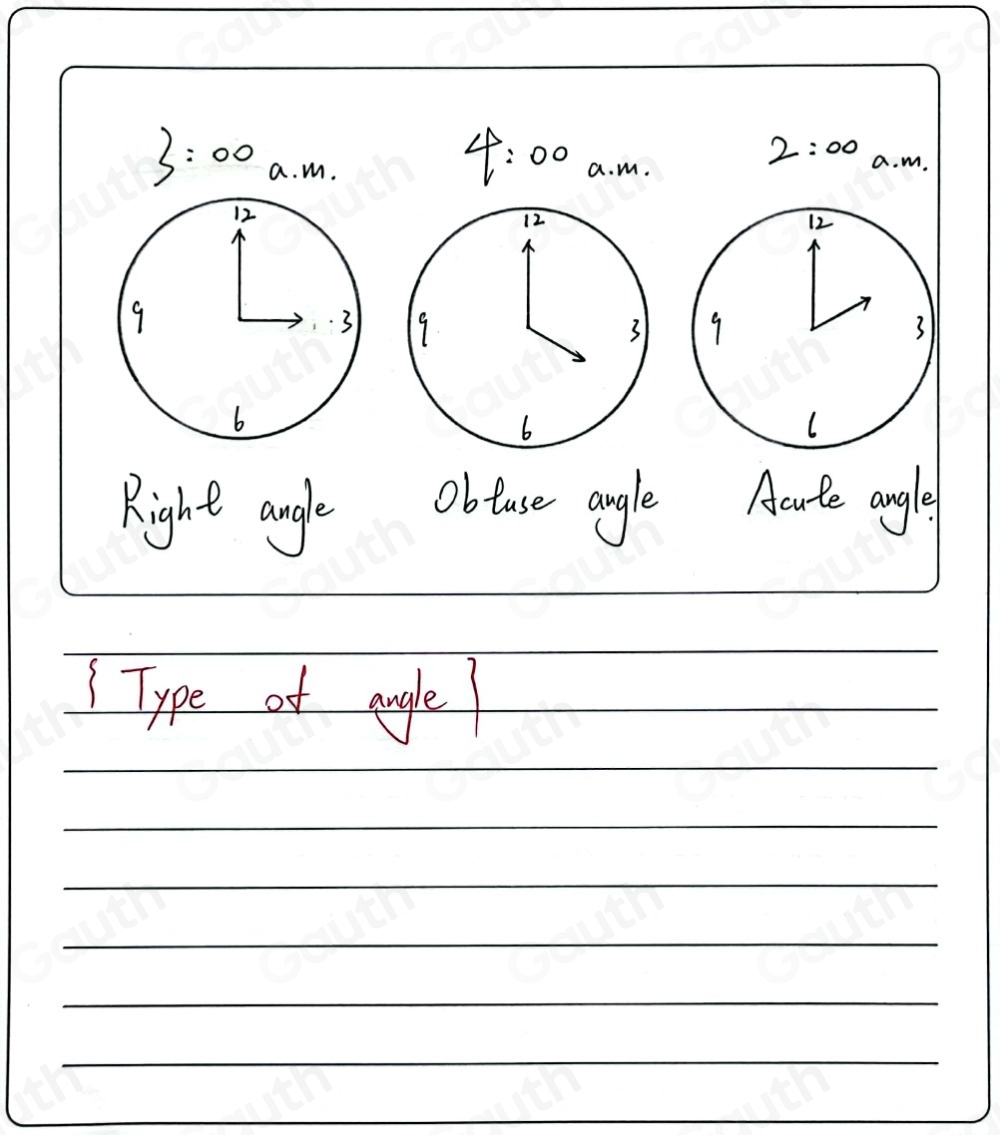 3:00 a.m. 4:00 a.m. 2:00 a.m.
12 12 12
9 3 9 3 9 3
6 6 6
Right angle Obtuse angle Acute angle
{Type of angle}